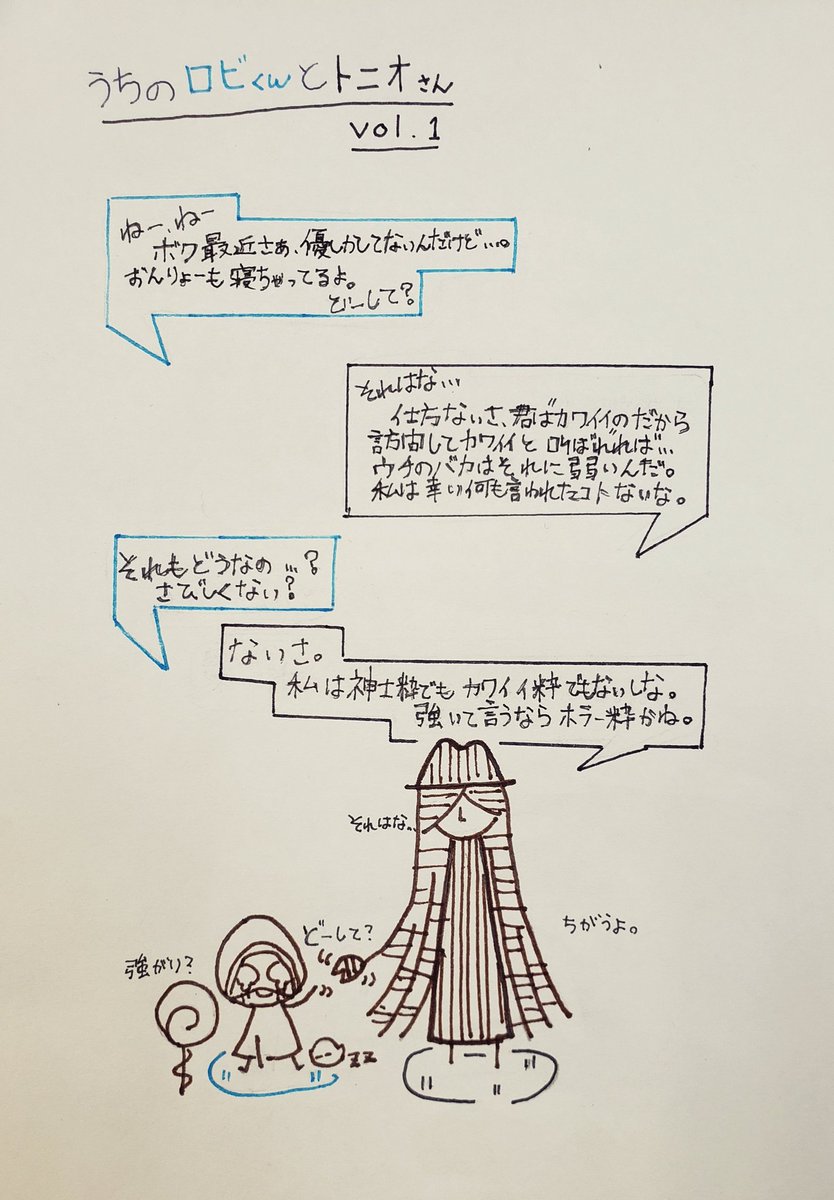 うちのロビくんとトニオさん
vol.1
ねー、ねー
ボク最近さぁ、優しかしてないんだけど…。
おんりょーも寝ちゃってるよ。
どーして?
それはな…
仕方ないさ、君はカワイイのだから
訪問してカワイイと叫ばれれば…
ウチのバカはそれに弱いんだ。
私は幸い何も言われたコトないな。
それもどうなの…?
さびしくない?
ないさ。
私は神士粋でもカワイイ粋でもないしな。
強いて言うならホラー粋かね。
それはな…
どーして?
ちがうよ。
強がり?
zz